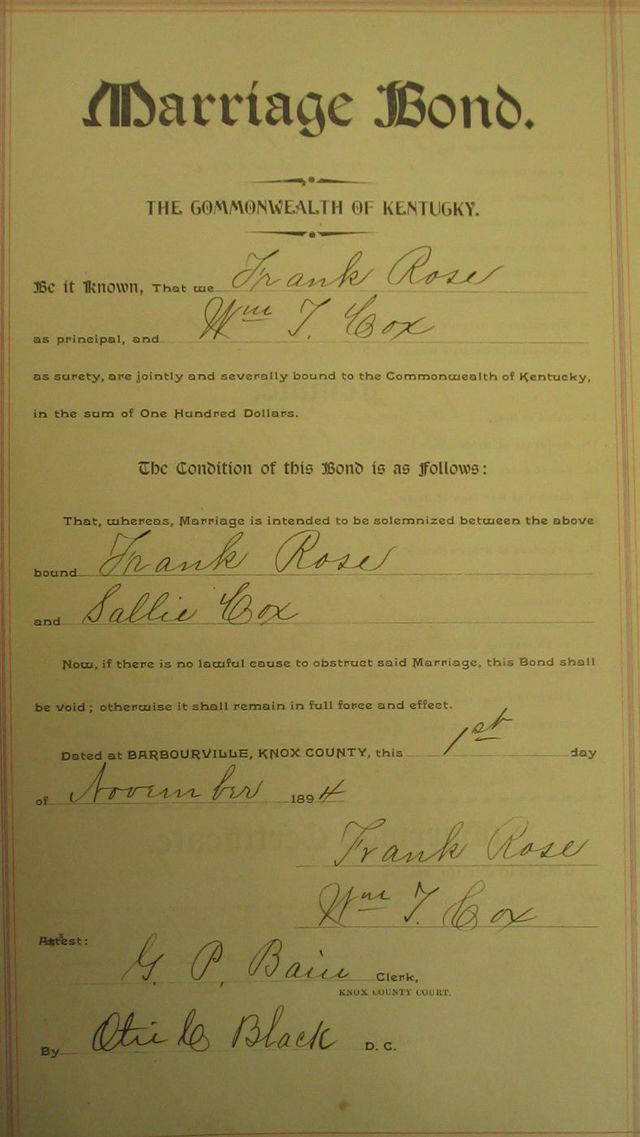 Marriage Bond.
THE COMMONWEALTH OF KENTUCKY.
Be it Known, That we Frank Rose
as principal, and Wm T. Cox
as surety, are jointly and severally bound to the Commonwealth of Kentucky,
in the sum of One Hundred Dollars.
The Condition of this Bond is as Follows:
That, whereas, Marriage is intended to be solemnized between the above
bound Frank Rose
and Sallie Cox
Now, if there is no lawful cause to obstruct said Marriage, this Bond shall
be void; otherwise it shall remain in full force and effect.
Dated at BARBOURVILLE, KNOX COUNTY, this 1st day
of November 1894
Frank Rose
Wm T. Cox
Attest:
G. P. Bain Clerk,
KNOX COUNTY COURT.
By Otie C Black D. C.